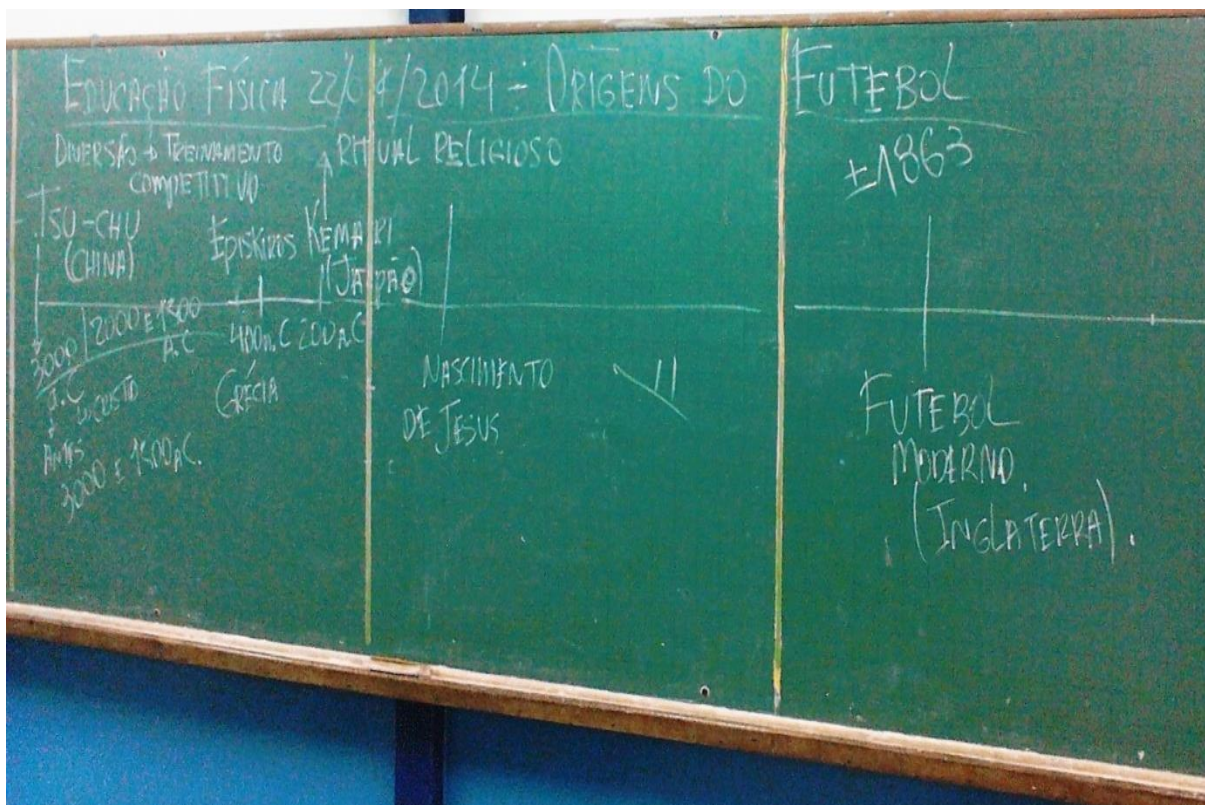 EDUCAÇÃO FÍSICA 22/04/2014 - ORIGENS DO FUTEBOL
DIVERSÃO → TREINAMENTO
COMPETITIVO
RITUAL RELIGIOSO
±1863
TSU-CHU
(CHINA)
EPISKIROS
KEMARI
(JAPÃO)
3000
A.C
2000 E 1500
A.C
400A.C
200A.C
GRÉCIA
ANTES
3000 E 1500 A.C.
NASCIMENTO
DE JESUS
FUTEBOL
MODERNO.
(INGLATERRA).